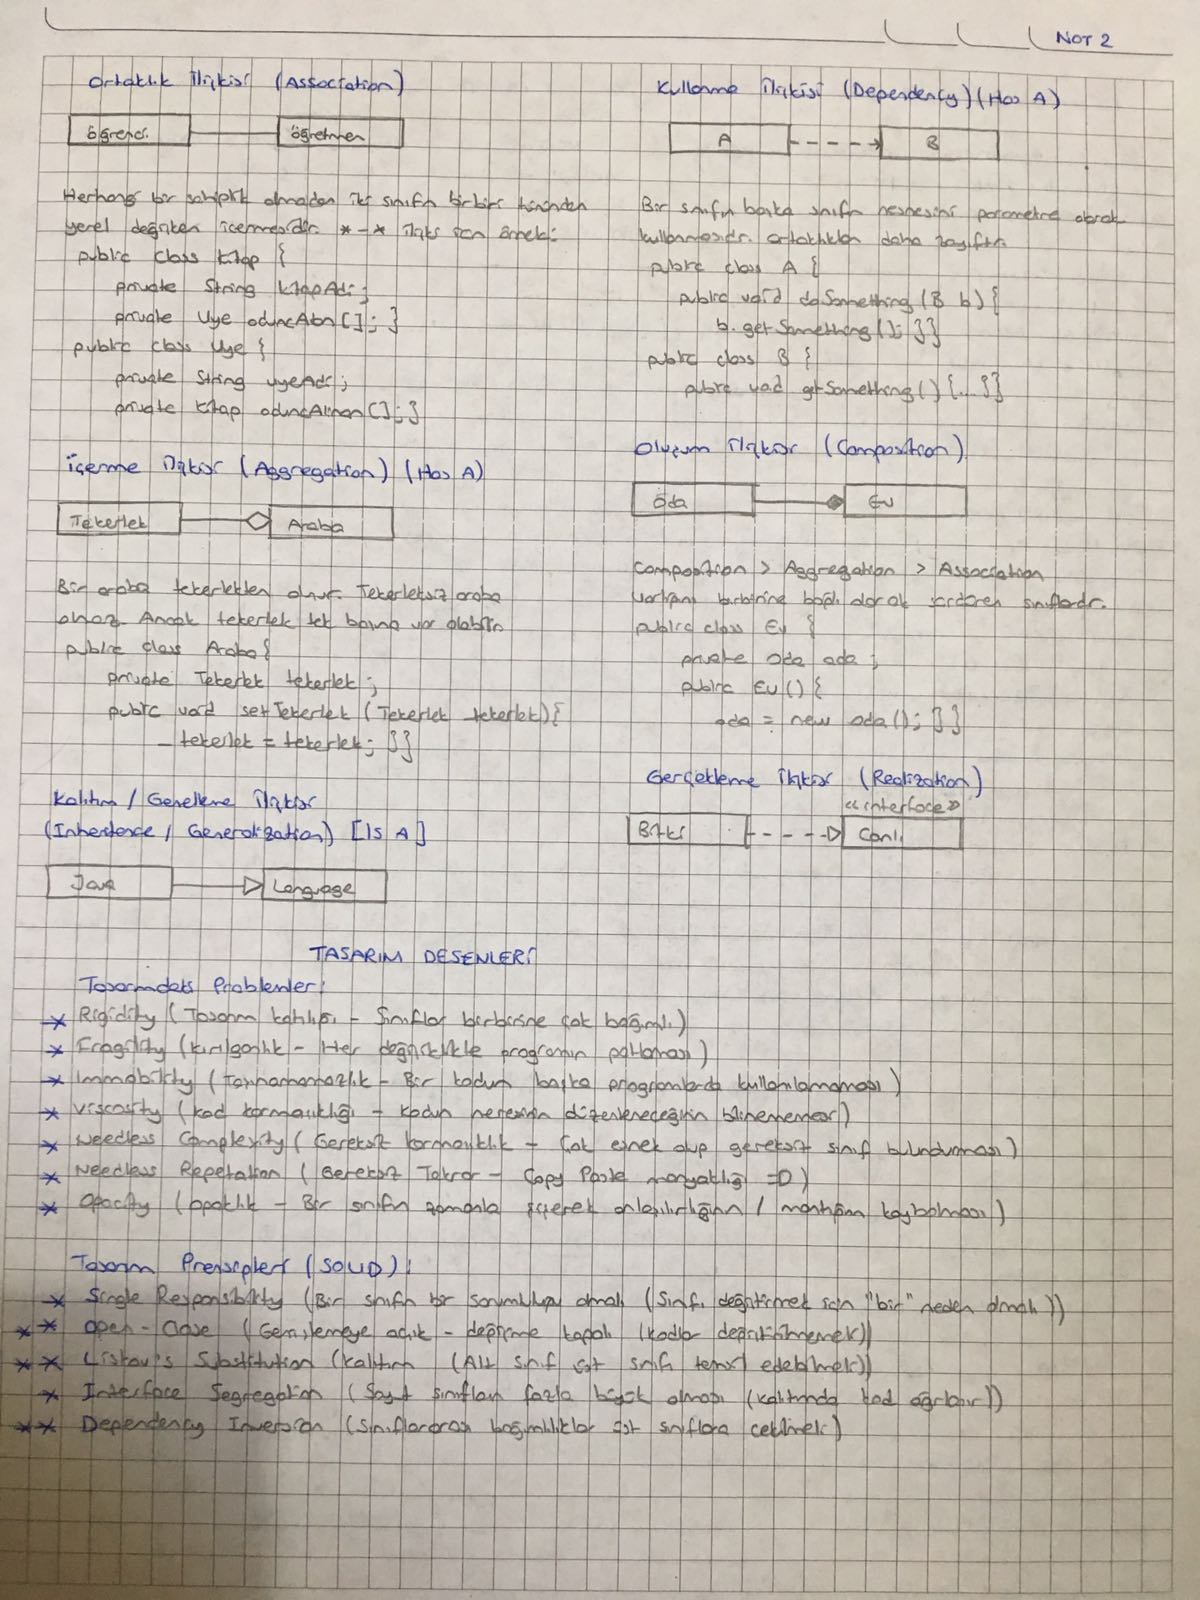 NOT 2
Ortaklık İlişkisi (Association)
öğrenci
öğretmen
Herhangi bir sahiplik olmadan iki sınıfın birbiri türünden
yerel değişken içermesidir. *-* ilişki için örnek:
public class Kitap {
private String kitapAdi;
private Uye oduncAlan[]; }
public class Uye {
private String uyeAdi;
private Kitap oduncAlinan[]; }
İçerme İlişkisi (Aggregation) (Has A)
Tekerlek
Araba
Bir araba tekerlekten oluşur. Tekerleksiz araba
olmaz. Ancak tekerlek tek başına var olabilir.
public class Araba{
private Tekerlek tekerlek;
public void setTekerlek (Tekerlek _tekerlek){
_tekerlek = tekerlek; }}
Kalıtım / Genelleme İlişkisi
(Inheritence / Generalization) [IS A]
Java
Language
Kullanma İlişkisi (Dependency) (Has A)
A
B
Bir sınıfın başka sınıfın nesnesini parametre olarak
kullanmasıdır. ortaklıktan daha zayıftır.
public class A {
public void doSomething (B b) {
b.getSomething(); }}
public class B {
public void getSomething() {...}}
Oluşum İlişkisi (Composition)
Oda
Ev
Composition > Aggregation > Association
Varlığını birbirine bağlı olarak sürdüren sınıflardır.
public class Ev {
private Oda oda;
public Ev() {
oda = new oda(); }}
Gerçekleme İlişkisi (Realization)
<<interface>>
Bitki
Canlı
TASARIM DESENLERİ
Tasarımdaki Problemler:
* Rigidity (Tasarım katılığı - Sınıflar birbirine çok bağımlı)
* Fragility (Kırılganlık - Her değişiklikte programın patlaması)
* Immobility (Taşınamamazlık - Bir kodun başka programlarda kullanılamaması)
* Viscosity (Kod karmaşıklığı - kodun neresinin düzenleneceğinin bilinememesi)
* Needless Complexity (Gereksiz karmaşıklık - Çok esnek olup gereksiz sınıf bulundurması)
* Needless Repetation (Gereksiz Tekrar - Copy Paste manyaklığı =D)
* Opacity (opaklık - Bir sınıfın zamanla şişerek anlaşılırlığının / mantığının kaybolması)
Tasarım Prensipleri (SOLID):
* Single Responsibility (Bir sınıfın bir sorumluluğu olmalı (Sınıfı değiştirmek için "bir" neden olmalı))
* * Open-Close (Genişlemeye açık - değişime kapalı (kodlar değiştirilmemeli))
* * Liskov's Substitution (Kalıtım (Alt sınıf üst sınıfı temsil edebilmeli))
* Interface Segregation (Soyut sınıfların fazla büyük olması (kalıtımda kod ağırlaşır))
* * Dependency Inversion (Sınıflararası bağımlılıklar üst sınıflara çekilmeli)